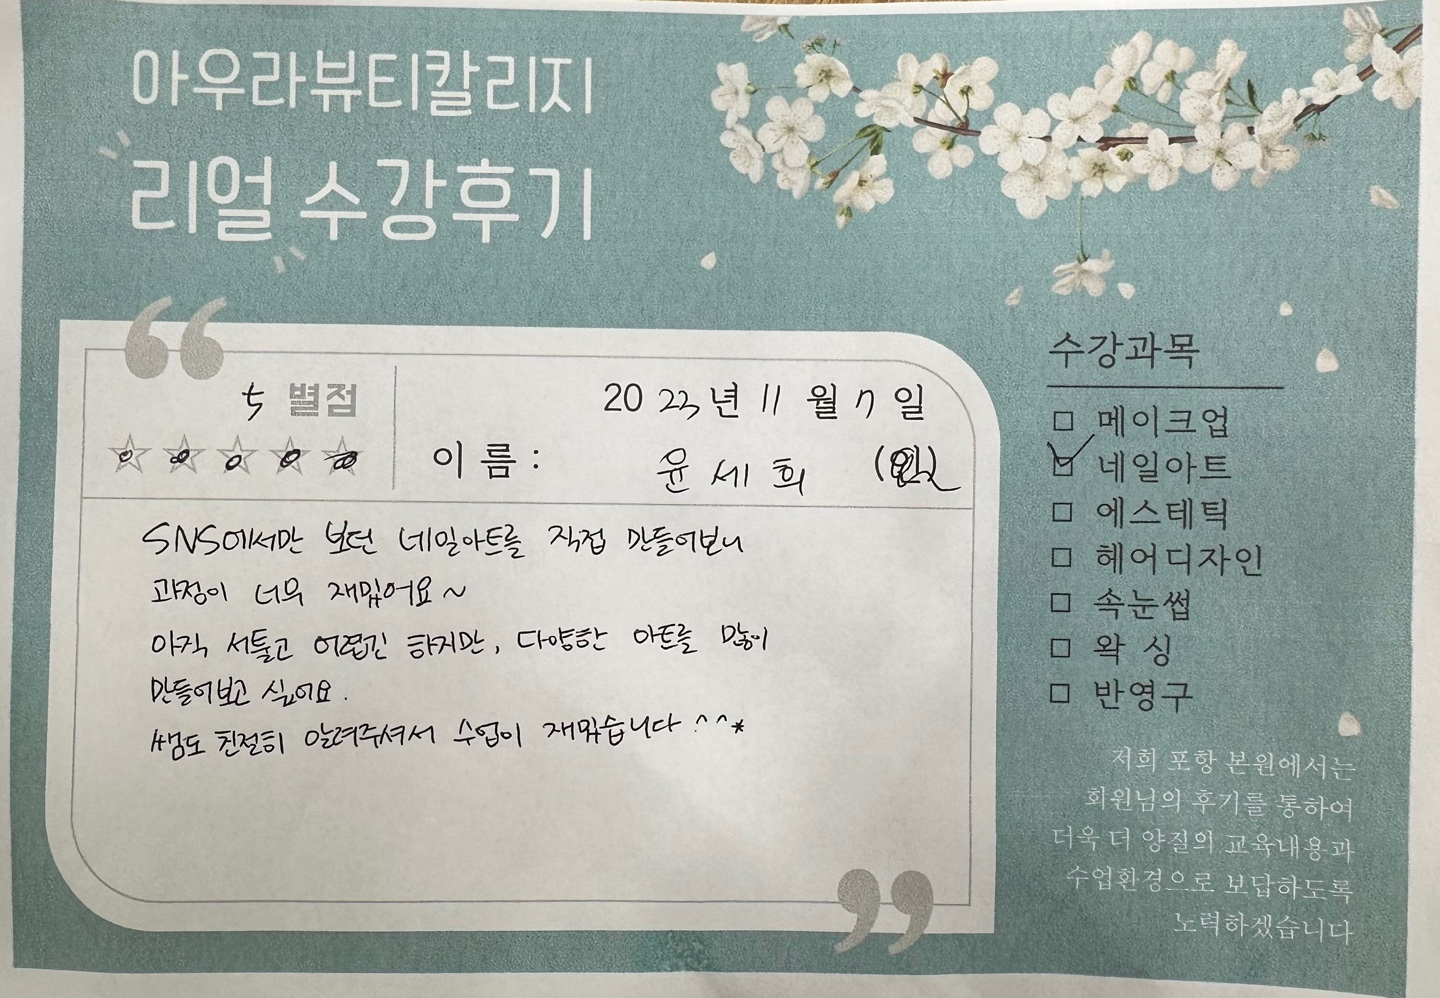 아우라뷰티칼리지
리얼 수강후기
5 별점
2023년 11월 7일
이름 : 윤세희
SNS에서만 보던 네일아트를 직접 만들어보니
과정이 너무 재밌어요~
아직 서툴고 어렵긴 하지만, 다양한 아트를 많이
만들어보고 싶어요.
쌤도 친절히 알려주셔서 수업이 재밌습니다 ^^*
수강과목
□ 메이크업
☑ 네일아트
□ 에스테틱
□ 헤어디자인
□ 속눈썹
□ 왁 싱
□ 반영구
저희 포항 본원에서는
회원님의 후기를 통하여
더욱 더 양질의 교육내용과
수업환경으로 보답하도록
노력하겠습니다